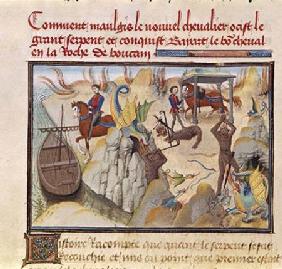 Comment maulgis le nouvel chevalier ocist le
grant serpent et conquist Baiart le bō cheval
en la Roche de boucain
Histoire racompte que quant le serpent se fut
et mis en point que premier estoit